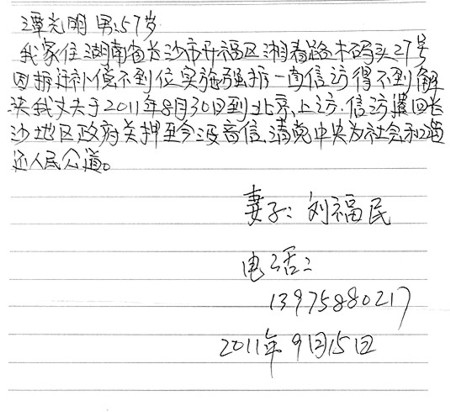 谭光明 男.57岁
我家住湖南省长沙市开福区湘春路木码头27号
因拆迁补偿不到位实施强拆一直信访得不到解
决我丈夫于2011年8月30日到北京上访.信访撞回长
沙地区政府关押至今没音信.请党中央为社会和谐
还人民公道。
妻子:刘福民
电话:
13975880217
2011年9月15日